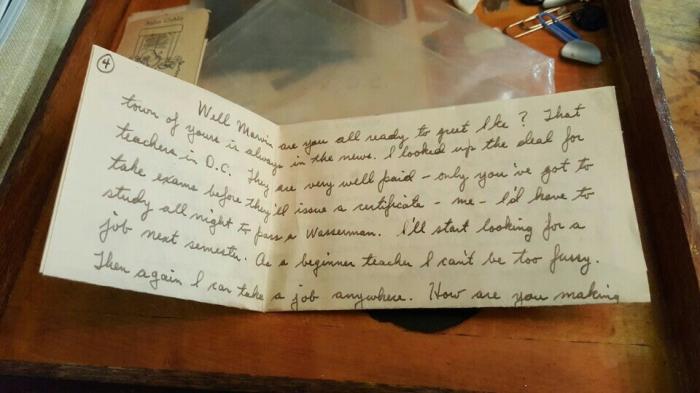 ④
Well Marvin are you all ready to greet Ike? That
town of yours is always in the news. I looked up the deal for
teachers in D.C. They are very well paid - only you've got to
take exams before they'll issue a certificate - me - I'd have to
study all night to pass a Wasserman. I'll start looking for a
job next semester. As a beginner teacher I can't be too fussy.
Then again I can take a job anywhere. How are you making